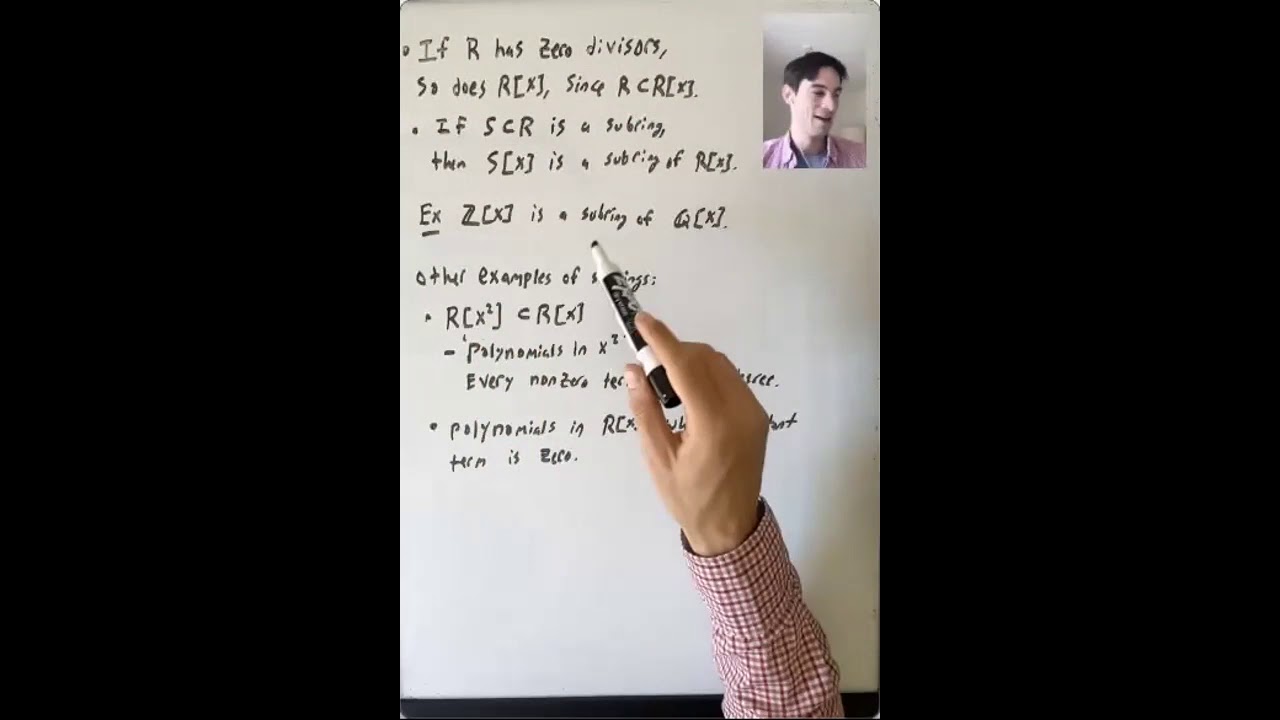 • If R has zero divisors,
So does R[x], since R⊂R[x].
• If S⊂R is a subring,
then S[x] is a subring of R[x].
Ex ℤ[x] is a subring of ℚ[x].
Other examples of
• R[x²] ⊂ R[x]
- "Polynomials in x²"
Every nonzero
• polynomials in
term is zero.